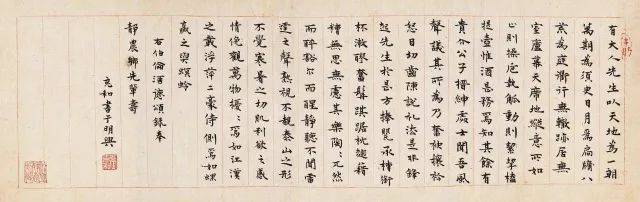 有大人先生以天地為一朝
萬期為須臾日月為扃牖八
荒為庭衢行無轍跡居無
室廬幕天席地縱意所如
止則操卮執觚動則挈榼
提壺惟酒是務焉知其餘有
貴介公子搢紳處士聞吾風
聲議其所為乃奮袂攘衿
怒目切齒陳說禮法是非鋒
起先生於是方捧甖承槽銜
杯漱醪奮髯踑踞枕麴藉
糟無思無慮其樂陶〻兀然
而醉豁爾而醒靜聽不聞雷
霆之聲熟視不覩泰山之形
不覺寒暑之切肌利欲之感
情俯觀萬物擾〻焉如江漢
之載浮萍二豪侍側焉如蜾
蠃之與螟蛉
右伯倫酒德頌錄奉
靜農鄉先輩壽
充和書于明興